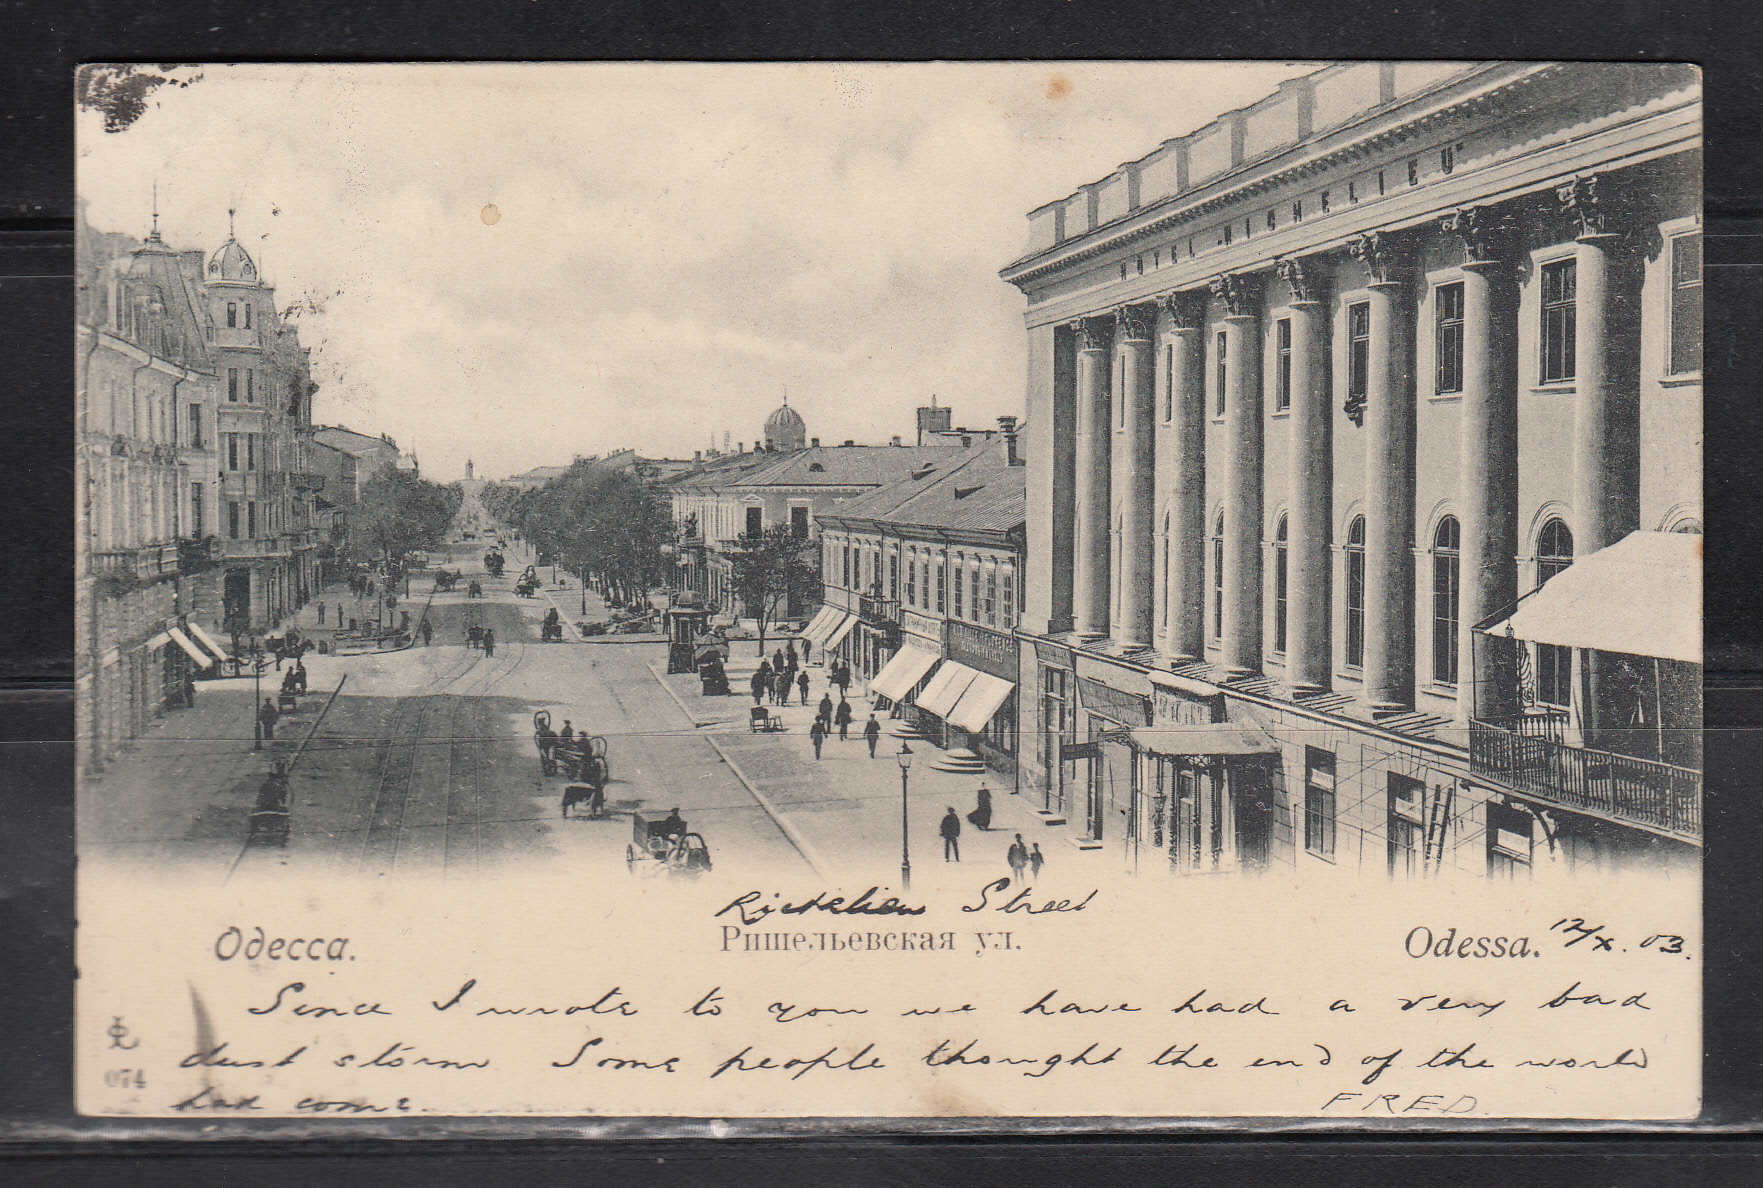 HOTEL RICHELIEU
Richelieu Street
Одесса. Ришельевская ул. Odessa. 12/X. 03.
Since I wrote to you we have had a very bad
dust storm Some people thought the end of the world
had come.
FRED
074